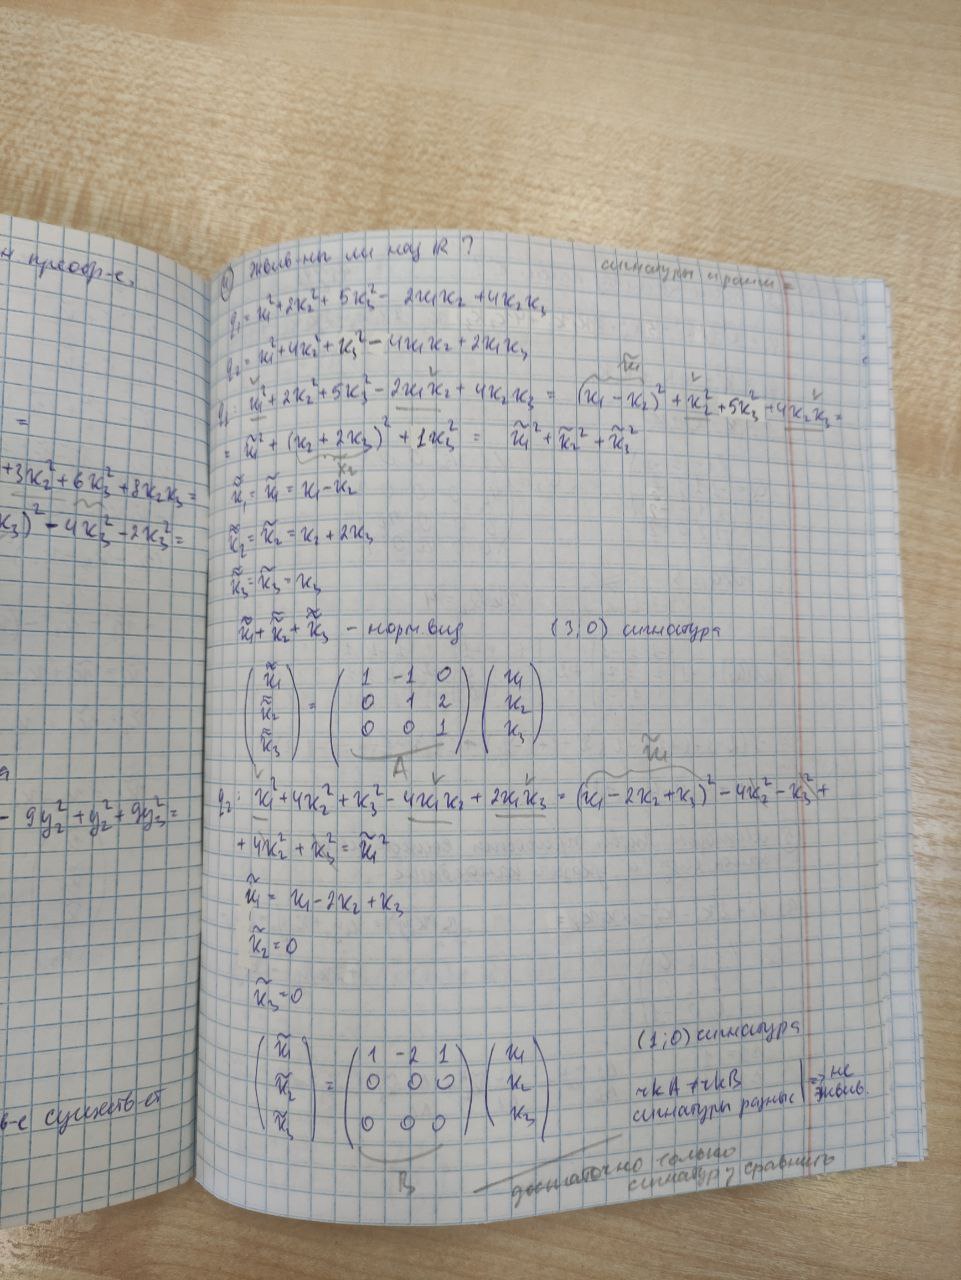 н преобр-е.
=
+3x₂² + 6x₃² + 8x₂x₃ =
x₃)² - 4x₃² - 2x₃² =
- 9y₂² + y₂² + 9y₃² =
в-е существ-ет
сигнатуры и ранги =
④ Эквив-ны ли над R?
q₁ = x₁² + 2x₂² + 5x₃² - 2x₁x₂ + 4x₂x₃
q₂ = x₁² + 4x₂² + x₃² - 4x₁x₂ + 2x₁x₃
x̃₁
q₁: x₁² + 2x₂² + 5x₃² - 2x₁x₂ + 4x₂x₃ = (x₁ - x₂)² + x₂² + 5x₃² + 4x₂x₃ =
= x̃₁² + (x₂ + 2x₃)² + 1x₃² = x̃₁² + x̃₂² + x̃₃²
x̃₂
x̃̃₁ = x̃₁ = x₁ - x₂
x̃̃₂ = x̃₂ = x₂ + 2x₃
x̃̃₃ = x̃₃ = x₃
x̃̃₁ + x̃̃₂ + x̃̃₃ - норм. вид (3;0) сигнатура
(x̃̃₁) (1 -1 0) (x₁)
(x̃̃₂) = (0 1 2) (x₂)
(x̃̃₃) (0 0 1) (x₃)
A
x̃₁
q₂: x₁² + 4x₂² + x₃² - 4x₁x₂ + 2x₁x₃ = (x₁ - 2x₂ + x₃)² - 4x₂² - x₃² +
+ 4x₂² + x₃² = x̃₁²
x̃₁ = x₁ - 2x₂ + x₃
x̃₂ = 0
x̃₃ = 0
(1;0) сигнатура
(x̃₁) (1 -2 1) (x₁)
(x̃₂) = (0 0 0) (x₂)
(x̃₃) (0 0 0) (x₃)
B
rkA ≠ rkB
сигнатуры разные | => не эквив.
достаточно только
сигнатуру сравнить